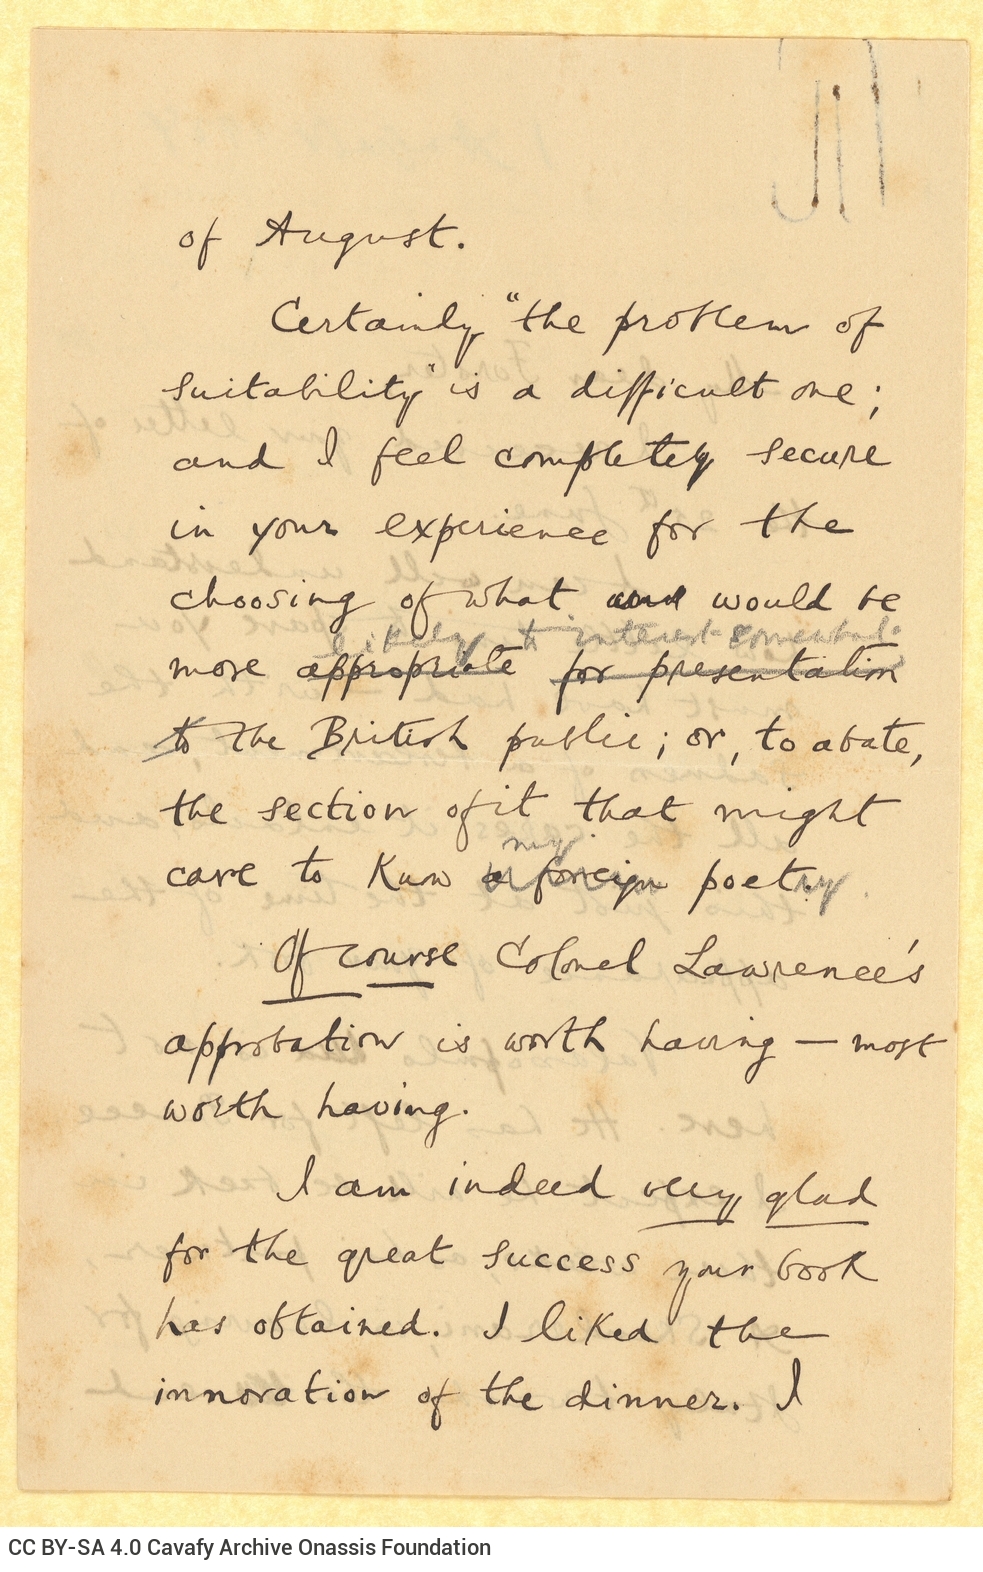 of August.
Certainly "the problem of
suitability" is a difficult one;
and I feel completely secure
in your experience for the
choosing of what would be
likely to interest somewhat
more appropriate for presentation
to the British public; or, to abate,
the section of it that might
my
care to know a foreign poetry.
Of course Colonel Lawrence's
approbation is worth having — most
worth having.
I am indeed very glad
for the great success your book
has obtained. I liked the
innovation of the dinner. I
CC BY-SA 4.0 Cavafy Archive Onassis Foundation